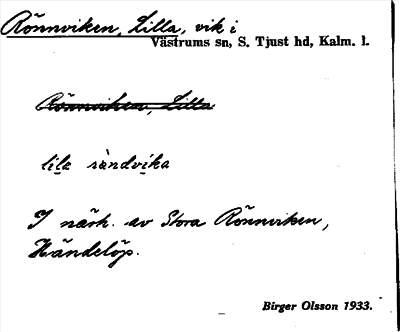 Rönnviken, Lilla, vik i
Västrums sn, S. Tjust hd, Kalm. l.
Rönnviken, Lilla
lila ràndvika
I närh. av Stora Rönnviken,
Händelöp.
Birger Olsson 1933.